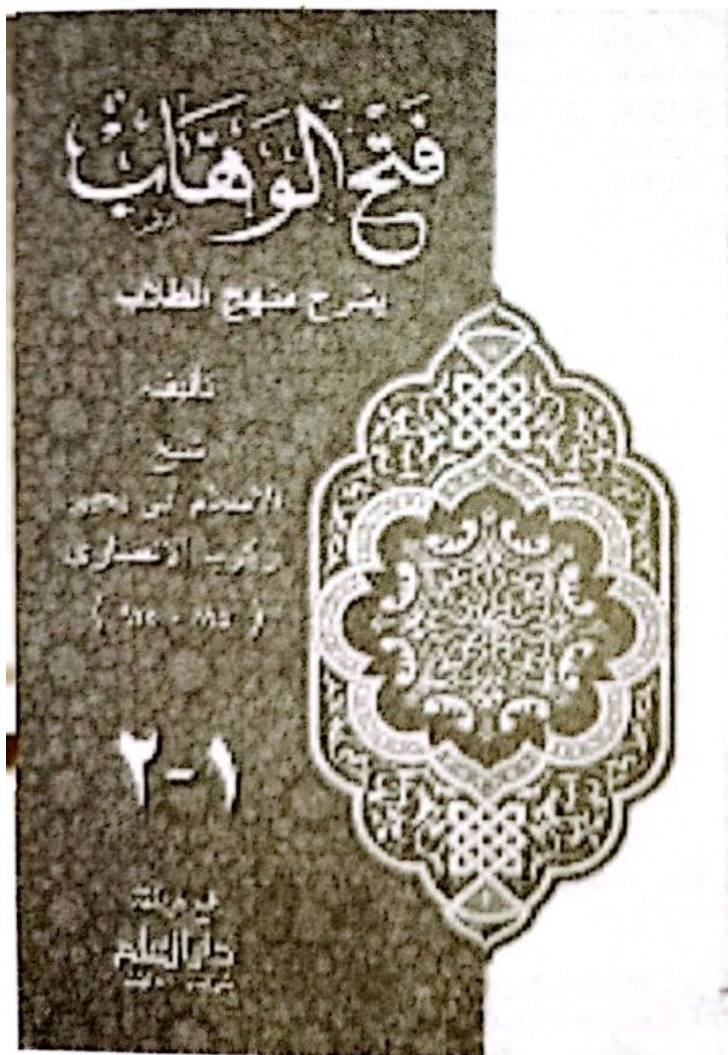 فَتْحُ الْوَهَّابِ
بشرح منهج الطلاب
تأليف
شيخ
الإسلام أبي يحيى
زكريا الأنصاري
١-٢
دار العلم